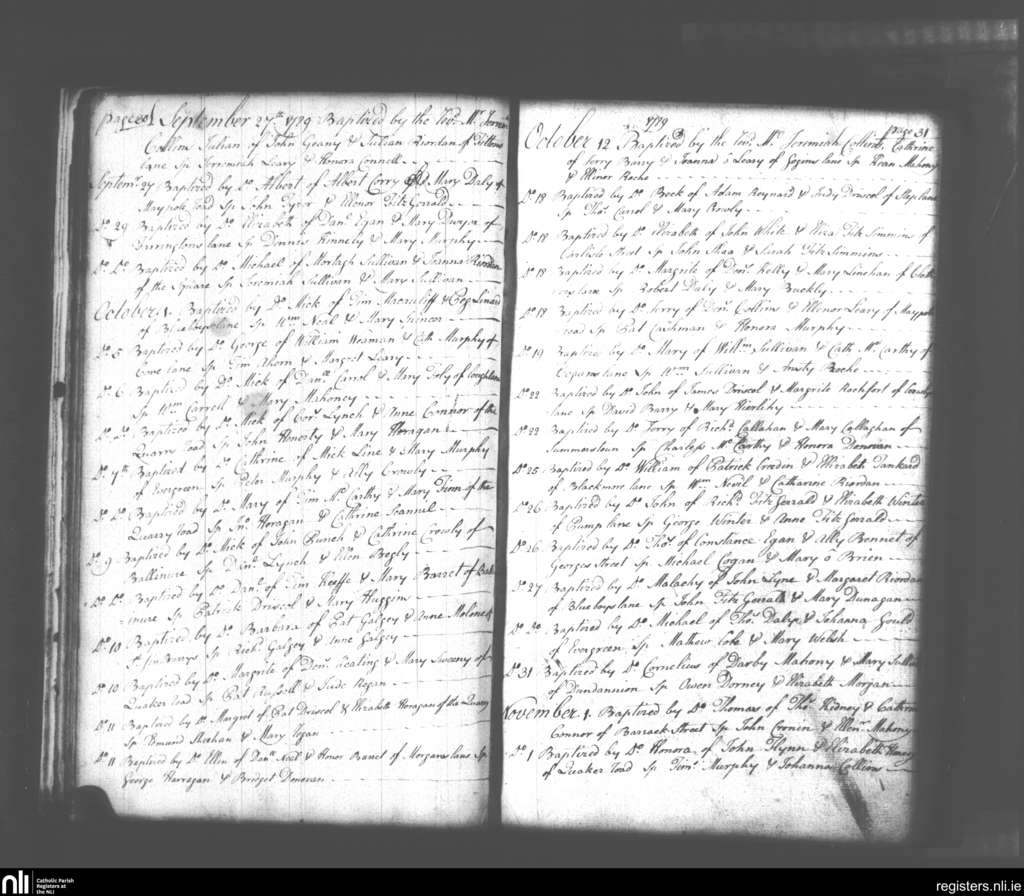 September 27th 1789 Baptized by the Revd. Mr. Jerem.
Collins Julian of John Geany & Julian Riordan of
lane Sp Jeremiah Leary & Honora Connell
Septemr. 27 Baptized by Do. Albert of Albert Corry & Mary Daly of
Maypole road Sp John & Elenor FitzGerald
Do. 29 Baptized by Do. Elizabeth of Danl. Egan & Mary Dwyer of
lane Sp Dennis Kinnely & Mary Murphy
Do. Do. Baptized by Do. Michael of Mortagh Sullivan & Joanna Riordan
of the Square Sp Jeremiah Sullivan & Mary Sullivan
October 1. Baptized by Do. Mick of Tim &
of lane Sp Wm. Neal & Mary Spencer
Do. 5 Baptized by Do. George of William & Cath. Murphy of
Cove lane Sp Tim Ahern & Margret Leary
Do. 6 Baptized by Do. Mick of Danl. Carrol & Mary of
Sp Wm. Carroll & Mary Mahoney
Do. Do. Baptized by Do. Mick of Cors. Lynch & Anne Connor of the
Quarry road Sp John & Mary Horagan
Do. 7th Baptized by Do. Cathrine of Mick Line & Mary Murphy
of Evergreen Sp Peter Murphy & Ally Crowly
Do. Do. Baptized by Do. Mary of Tim McCarthy & Mary of the
Quarry road Sp Jno. Horagan & Cathrine
Do. 9 Baptized by Do. Mick of John & Cathrine Crowly of
Ballimure Sp Danl. Lynch & Ellen Begly
Do. Do. Baptized by Do. Danl. of Tim Keeffe & Mary Barret of Balli
=mure Sp Patrick Driscol & Mary Huggins
Do. 10 Baptized by Do. Barbara of Pat Galgey & Anne Moloney
Sp Richd. Galgey & Anne Galgey
Do. 10 Baptized by Do. Margrite of Denis Keating & Mary Sweeny of
Quaker road Sp Pat Russell & Jude Regan
Do. 11 Baptized by Do. Margret of Pat Driscol & Elizabeth Horagan of the Quarry
Sp Edmund Sheehan & Mary Hogan
Do. 11 Baptized by Do. Ellen of Danl. & Honor Barret of Morgans lane Sp
George Harragan & Bridget Donovan
1789
page 31
October 12 Baptized by the Revd. Mr. Jeremiah Collins Cathrine
of Terry Barry & Joanna o Leary of lane Sp Kean Mahony
& Elinor Roche
Do. 18 Baptized by Do. Beck of Adam Reynard & Judy Driscol of
Sp Thos. Carrol & Mary
Do. 18 Baptized by Do. Elizabeth of John White & Eliza FitzSimmins of
Carlisle Street Sp John Shea & Sarah FitzSimmins
Do. 18 Baptized by Do. Margrite of Denis Kelly & Mary Linehan of
lane Sp Robert Daly & Mary Buckly
Do. 18 Baptized by Do. Terry of Denis Collins & Ellenor Leary of Maypole
road Sp Pat Cashman & Honora Murphy
Do. 19 Baptized by Do. Mary of Willm. Sullivan & Cath McCarthy of
Cogans lane Sp Wm. Sullivan & Roche
Do. 22 Baptized by Do. John of James Driscol & Margrite Rochfort of
lane Sp David Barry & Mary Hierlihy
Do. 22 Baptized by Do. Terry of Richd. Callahan & Mary Callaghan of
Summerstown Sp Charles McCarthy & Honora Donovan
Do. 25 Baptized by Do. William of Patrick & Elizabeth Tankard
of Blackmore lane Sp Wm. Nevil & Catharine Riordan
Do. 26 Baptized by Do. John of Richd. FitzGerrald & Elizabeth Winter
of Pump lane Sp George Winter & Anne FitzGerrald
Do. 26 Baptized by Do. Thos. of Constance Egan & Ally Bennet of
Georges Street Sp Michael Cogan & Mary o Brien
Do. 27 Baptized by Do. Malachy of John Lyne & Margaret Riordan
of Blueboys lane Sp John FitzGerrald & Mary Dunagan
Do. Do. Baptized by Do. Michael of Thos. Daly & Johanna Gould
of Evergreen Sp Mathew & Mary Welsh
Do. 31 Baptized by Do. Cornelius of Darby Mahony & Mary Sullivan
of Dundanuion Sp Owen Dorney & Elizabeth Morgan
November 1. Baptized by Do. Thomas of Thos. Hedney & Cathrine
Connor of Barrack Street Sp John Cronin & Ellenr. Mahony
Do. 1 Baptized by Do. Honora of John Flynn & Elizabeth
of Quaker road Sp Timy. Murphy & Johanna Collins
nli
Catholic Parish
Registers at
the NLI
registers.nli.ie